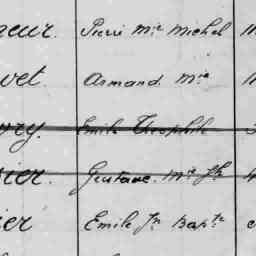 geur. Pierre Mie Michel
vet. Armand Mie
ory. Emile Théophile
sier. Gustave Mie Jh
ier Emile Jn Bapte